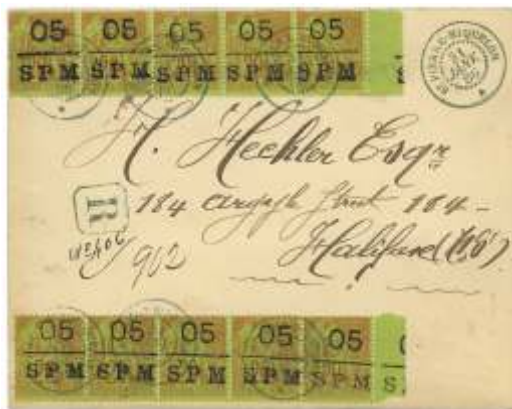 05 05 05 05 05
SPM SPM SPM SPM SPM S
ST PIERRE-MIQUELON
H. Hechler Esqr
184 Argyle Street 184-
Halifax
R
902
05 05 05 05 05
SPM SPM SPM SPM SPM S